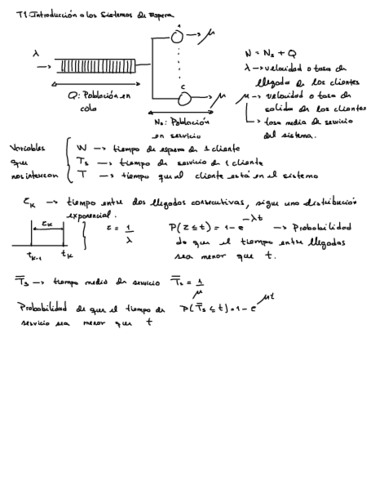 T1. Introducción a los Sistemas de Espera
λ
1
μ
c
μ
Q: Población en
cola
Ns: Población
en servicio
N = Ns + Q
λ → velocidad o tasa de
llegada de los clientes
μ → velocidad o tasa de
salida de los clientes
↳ tasa media de servicio
del sistema.
Variables
que
nos interesan
W → tiempo de espera de 1 cliente
Ts → tiempo de servicio de 1 cliente
T → tiempo que el cliente está en el sistema
τk → tiempo entre dos llegadas consecutivas, sigue una distribución
exponencial.
τk
tk-1
tk
τ = 1/λ
P(τ ≤ t) = 1 - e^-λt → Probabilidad
de que el tiempo entre llegadas
sea menor que t.
T̅s → tiempo medio de servicio T̅s = 1/μ
Probabilidad de que el tiempo de P(T̅s ≤ t) = 1 - e^μt
servicio sea menor que t